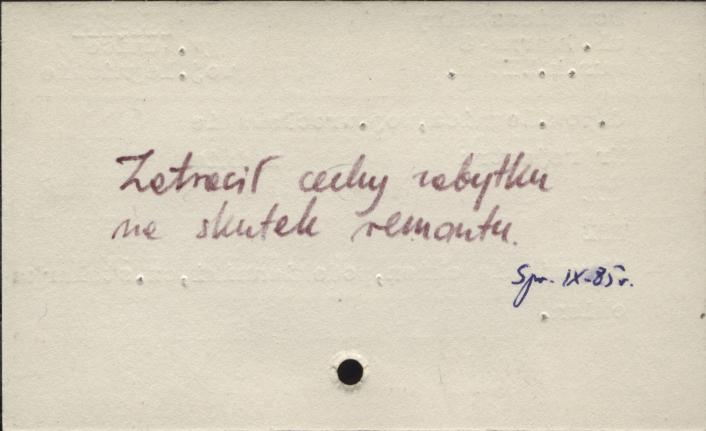 Zatracił cechy zabytku
na skutek remontu.
Spr. IX-85r.